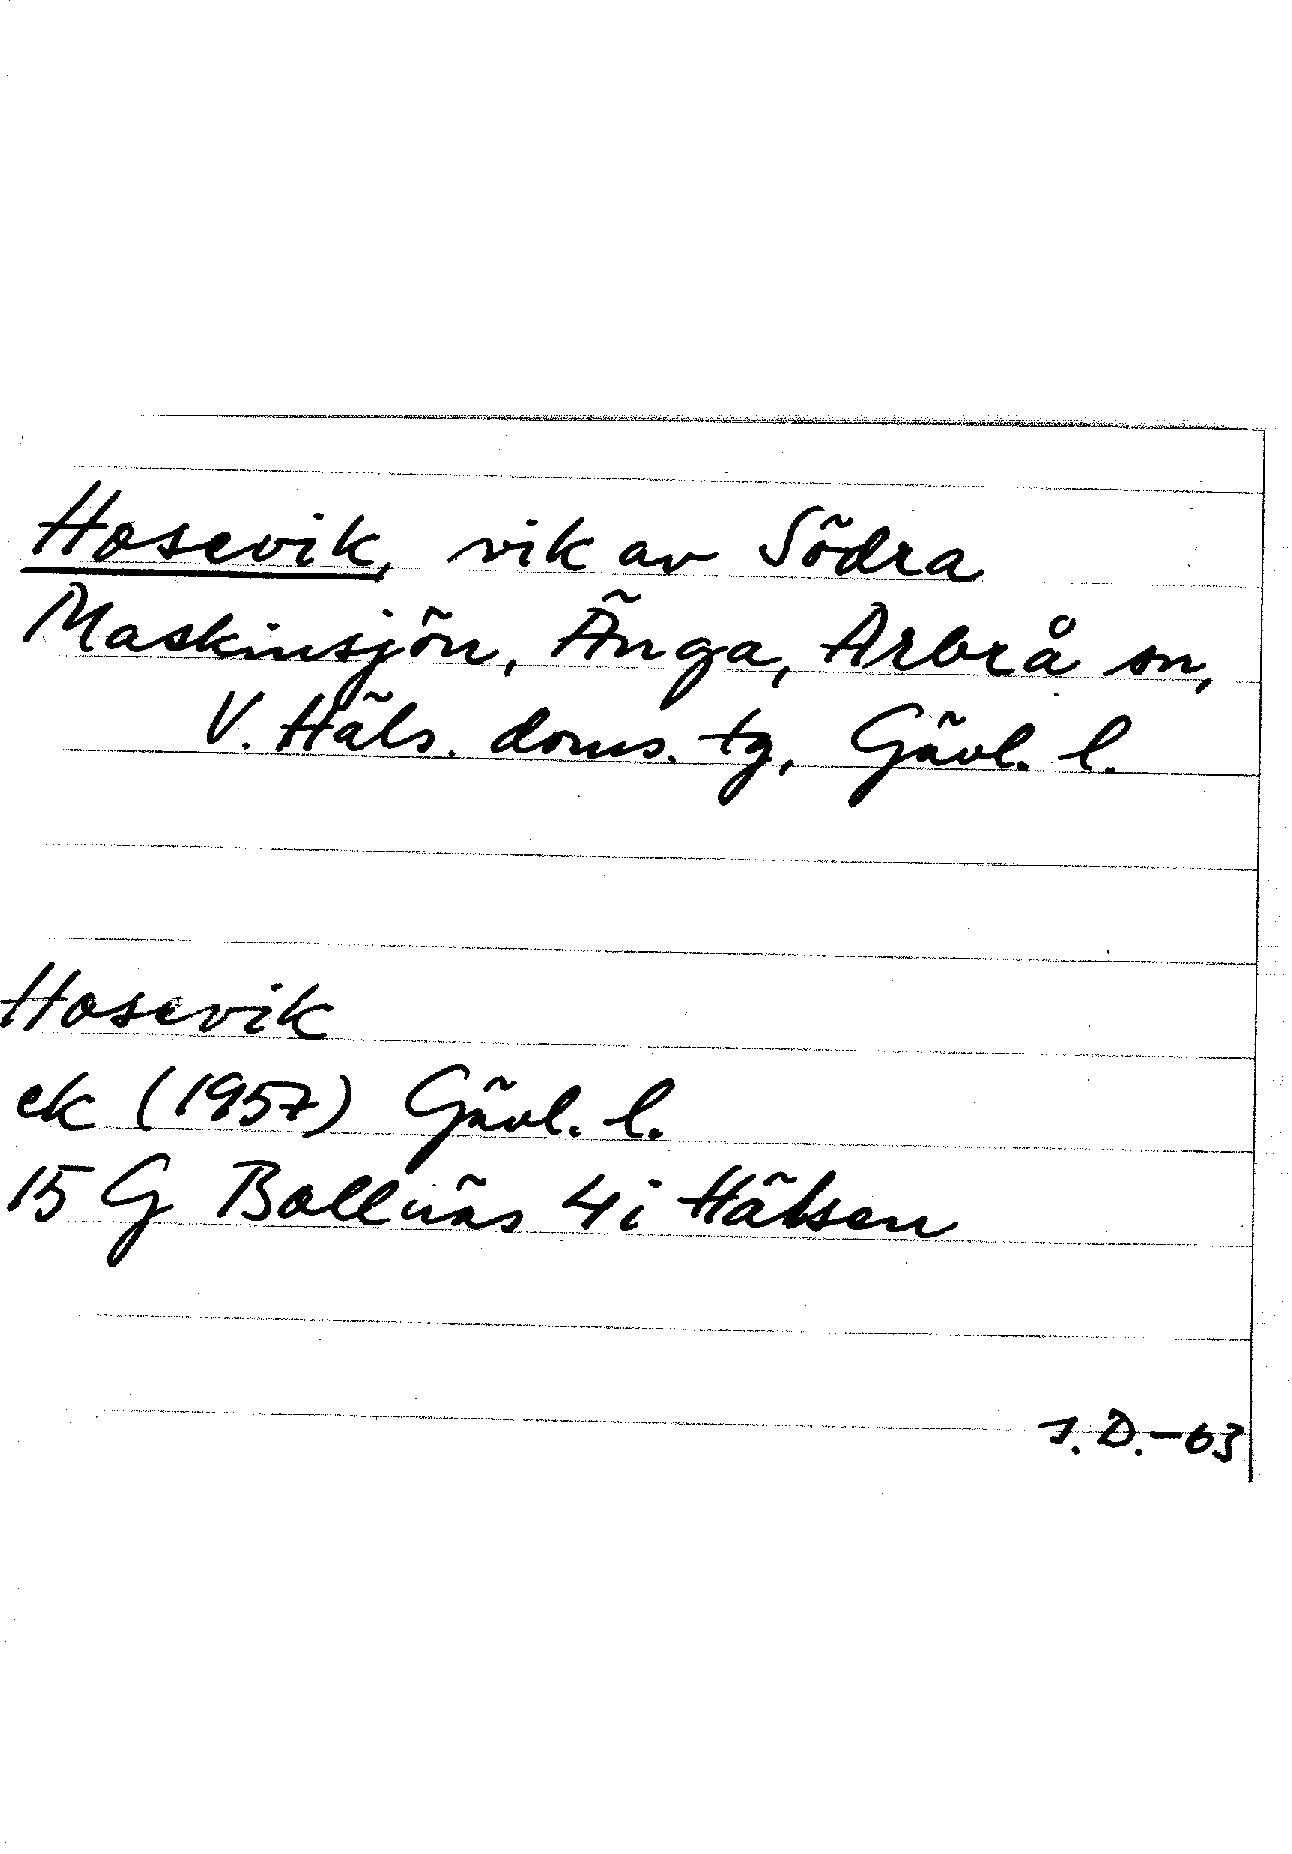 Hosevik, vik av Södra
Maskinsjön, Änga, Arbrå sn,
V. Häls. doms. tg, Gävl. l.
Hosevik
ek (1957) Gävl. l.
15 G Bollnäs 4i Hälsen
J. D. -63